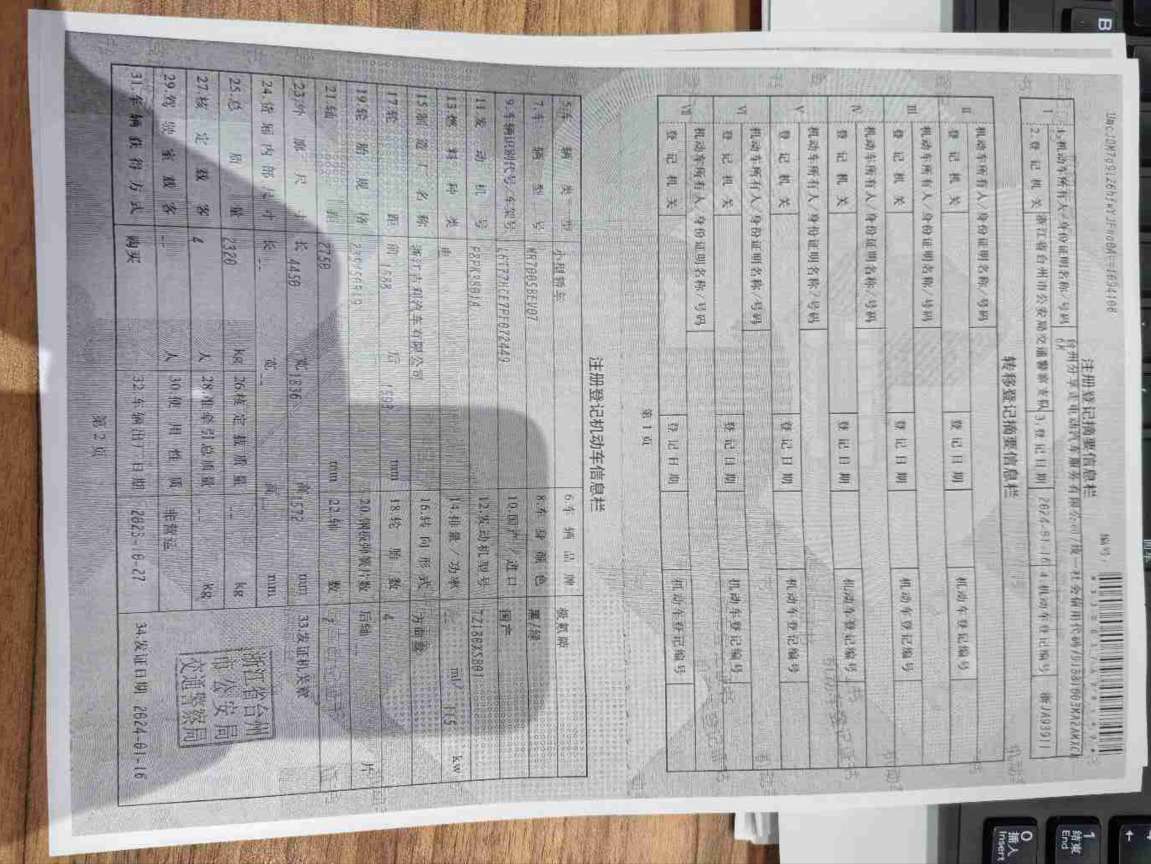 注册登记摘要信息栏
编号:
1.机动车所有人/身份证明名称/号码
2.登记机关 浙江省台州市公安局交通警察支队 3.登记日期 2024-01-16 4.机动车登记编号 浙JA93911
转移登记摘要信息栏
Ⅱ 机动车所有人/身份证明名称/号码
登记机关 登记日期 机动车登记编号
Ⅲ 机动车所有人/身份证明名称/号码
登记机关 登记日期 机动车登记编号
Ⅳ 机动车所有人/身份证明名称/号码
登记机关 登记日期 机动车登记编号
Ⅴ 机动车所有人/身份证明名称/号码
登记机关 登记日期 机动车登记编号
Ⅵ 机动车所有人/身份证明名称/号码
登记机关 登记日期 机动车登记编号
Ⅶ 机动车所有人/身份证明名称/号码
登记机关 登记日期 机动车登记编号
第1页
注册登记机动车信息栏
5.车辆类型 小型轿车 6.车辆品牌 极氪牌
7.车辆型号 MR7005BEV07 8.车身颜色 黑/绿
9.车辆识别代号/车架号 10.国产/进口 国产
11.发动机号 12.发动机型号 TZ180XS001
13.燃料种类 电 14.排量/功率 ml/ 115 kw
15.制造厂名称 浙江吉利汽车有限公司 16.转向形式 方向盘
17.轮距 前 后 mm 18.轮胎数 4
19.轮胎规格 20.钢板弹簧片数 后轴 片
21.轴距 2750 mm 22.轴数 2
23.外廓尺寸 长 4450 宽 1836 高 1572 mm 33.发证机关章
24.货厢内部尺寸 长 -- 宽 -- 高 -- mm
25.总质量 2320 kg 26.核定载质量 -- kg
27.核定载客 4 人 28.准牵引总质量 -- kg
29.驾驶室载客 -- 人 30.使用性质 非营运
31.车辆获得方式 购买 32.车辆出厂日期 2023-6-27 34.发证日期 2024-01-16
浙江省台州
市公安局
交通警察局
第2页
B
1
结束
End
0
插入
Insert